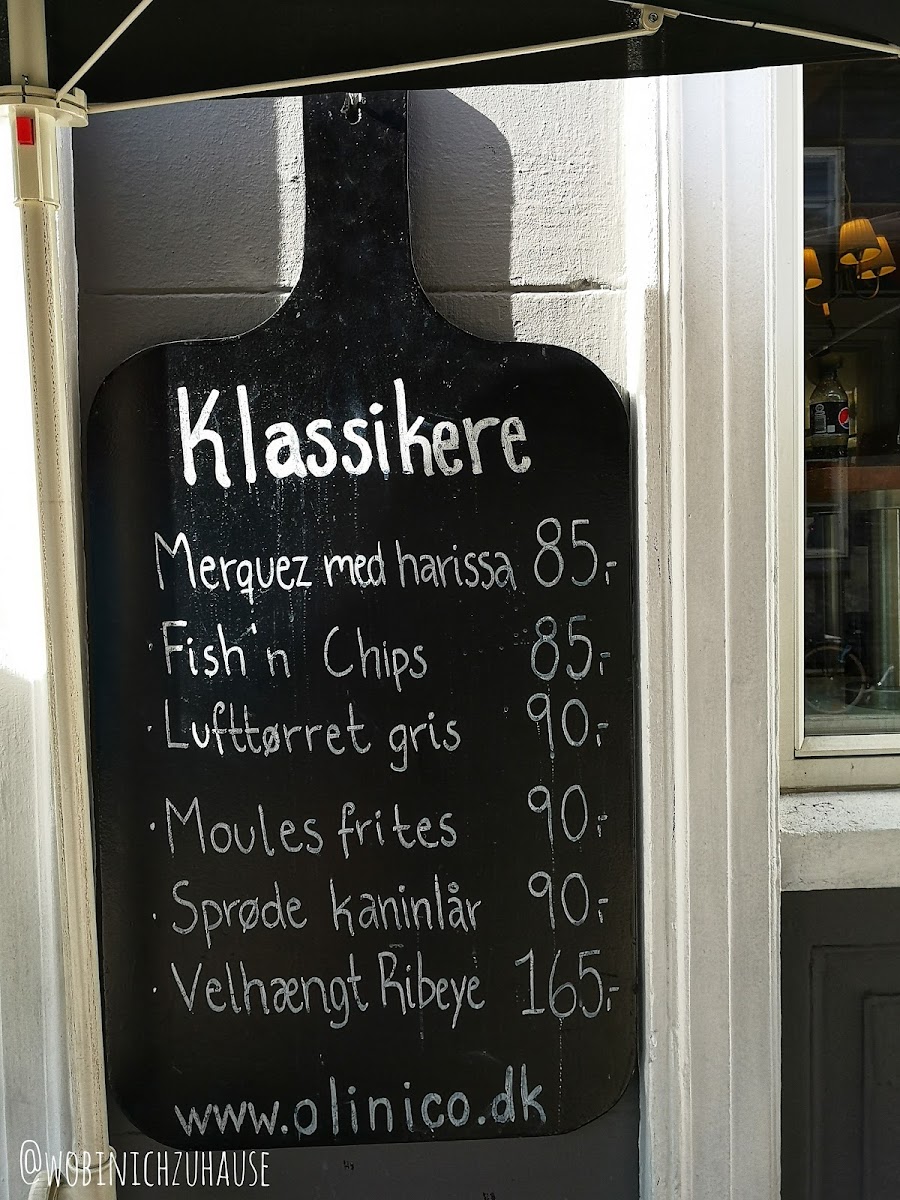 Klassikere
Merquez med harissa 85,-
· Fish'n Chips 85,-
· Lufttørret gris 90,-
· Moules frites 90,-
· Sprøde kaninlår 90,-
· Velhængt Ribeye 165,-
www.olinico.dk
@WOBINICHZUHAUSE